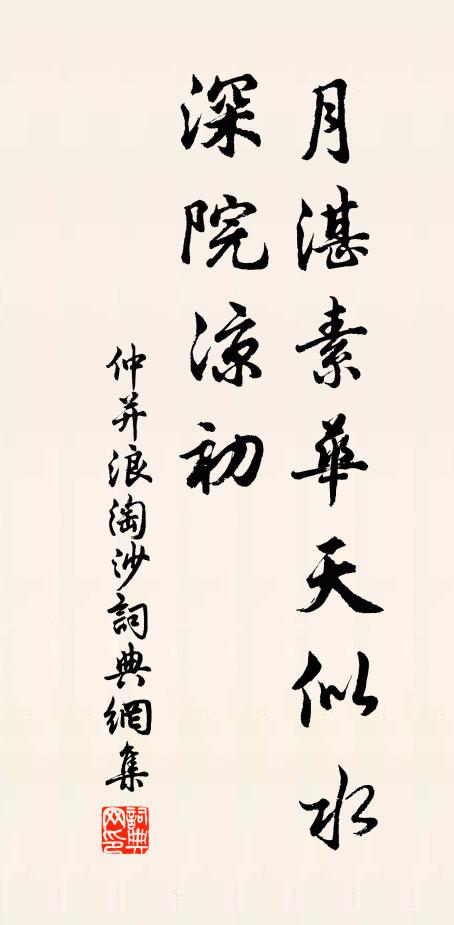 月湛素華天似水
深院涼初
仲并浪淘沙詞典網集
詞典網印